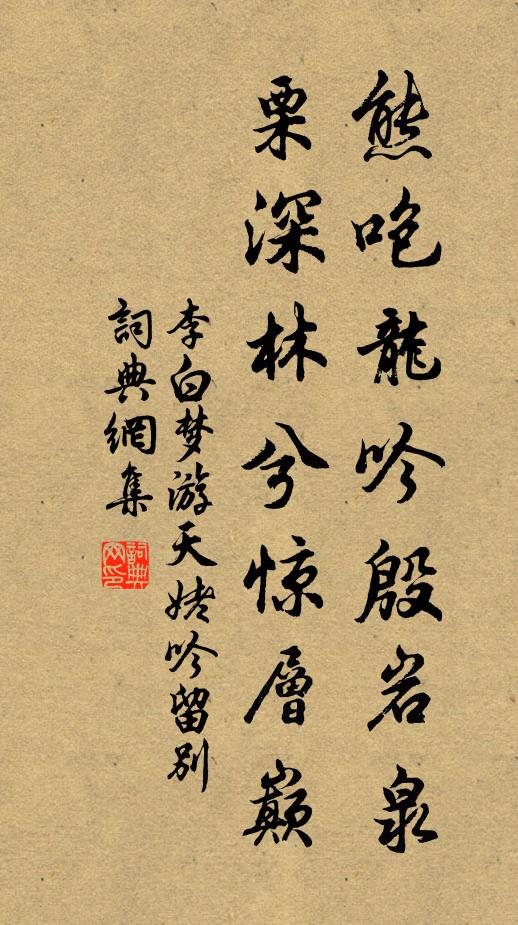 熊咆龍吟殷岩泉
栗深林兮惊層巔
李白梦游天姥吟留别
詞典網集
詞典网印